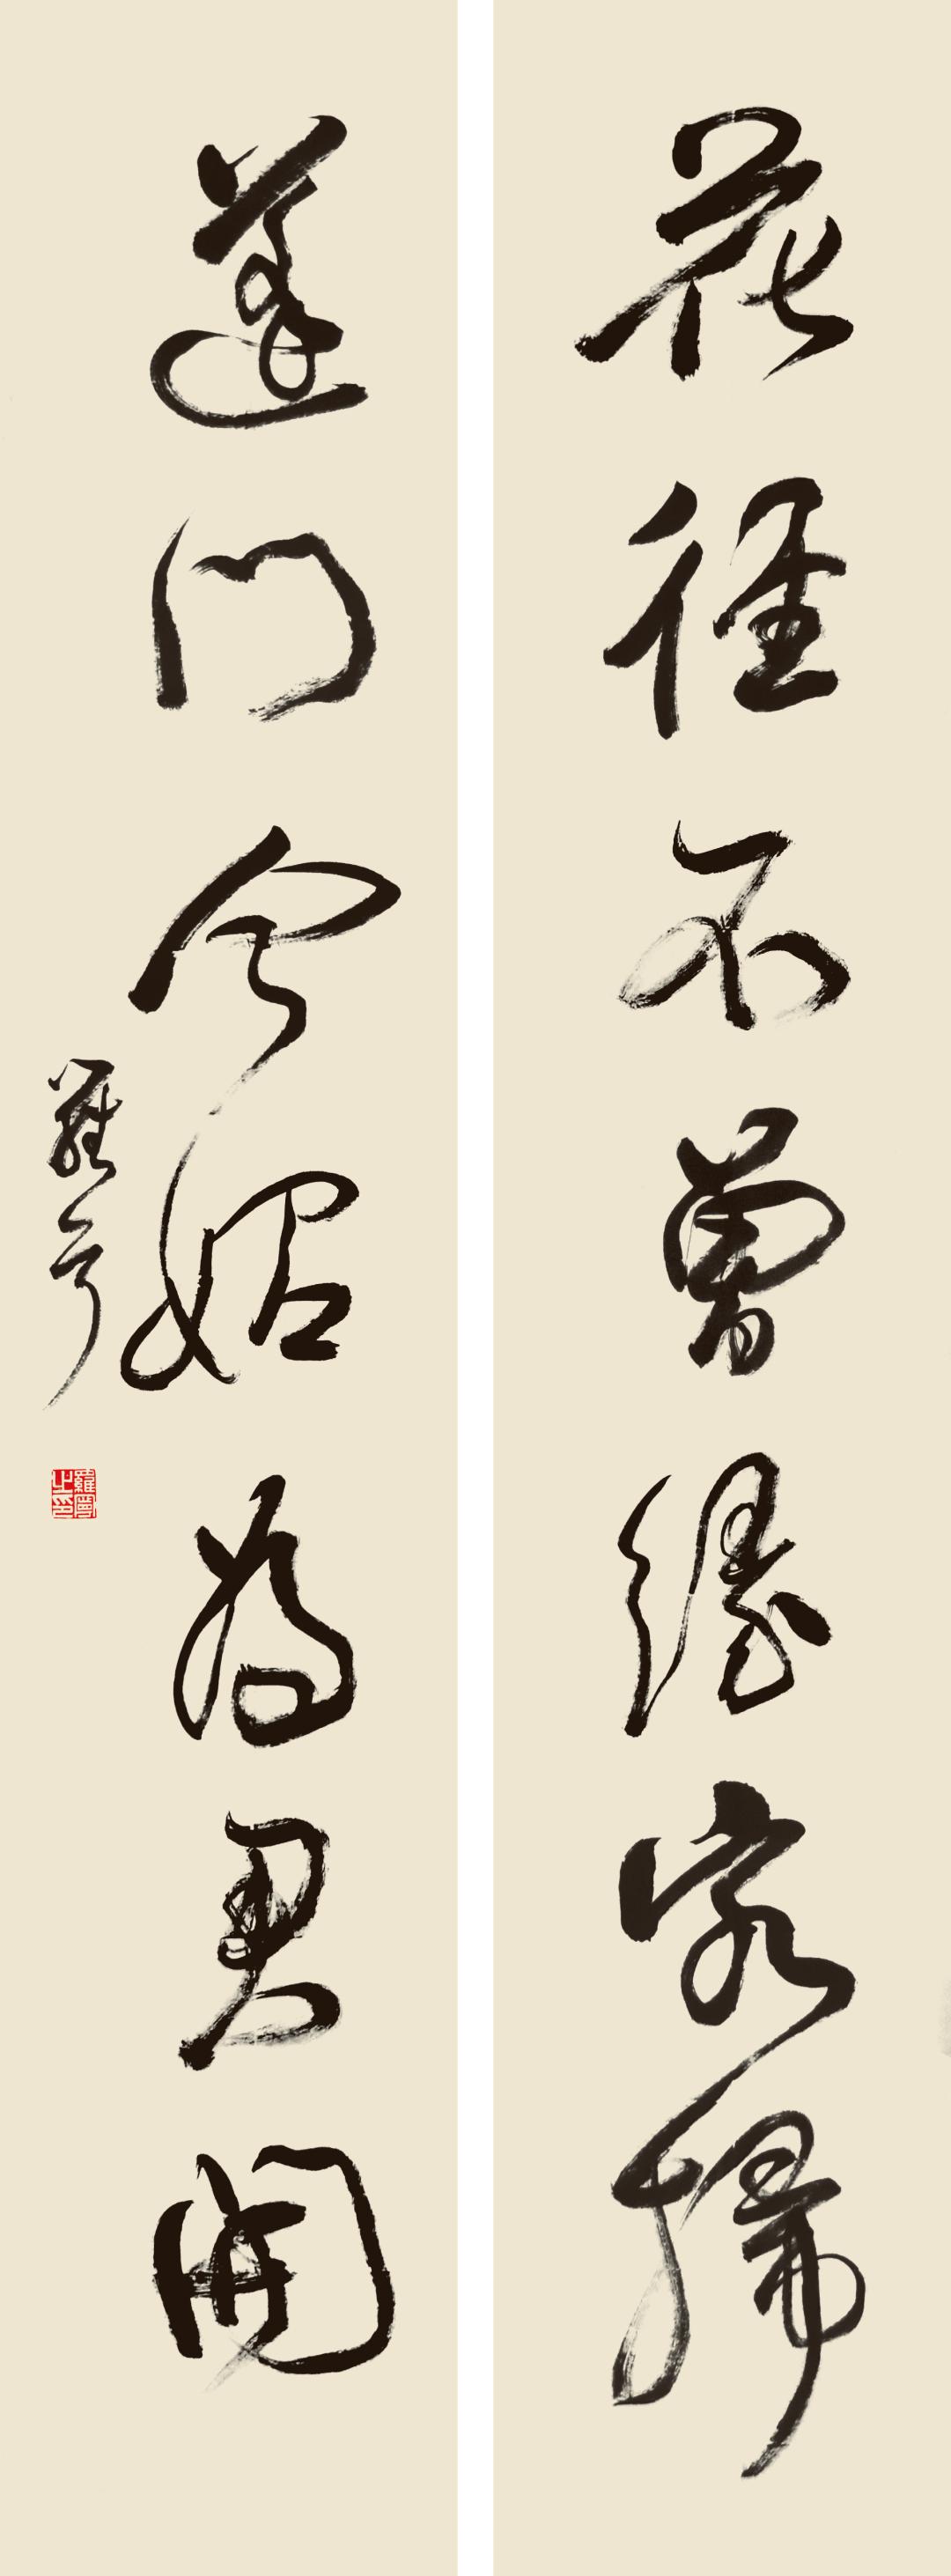 花徑不曾緣客掃
蓬門今始為君開
羅寧
羅寧之印